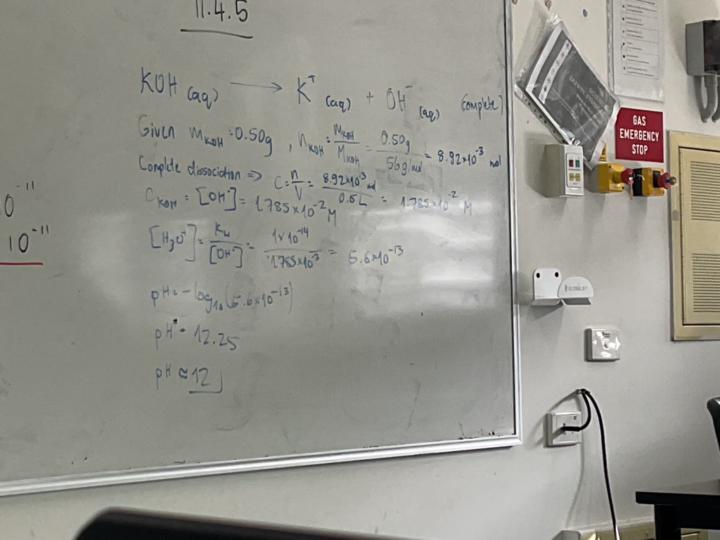 11.4.5
KOH (aq) → K⁺ (aq) + OH⁻ (aq) (complete)
Given m_KOH = 0.50g, n_KOH = m_KOH/M_KOH = 0.50g/56g/mol = 8.92×10⁻³ mol
Complete dissociation ⇒ C = n/V = 8.92×10⁻³ mol/0.5L = 1.785×10⁻² M
C_KOH = [OH⁻] = 1.785×10⁻² M
[H₃O⁺] = Kw/[OH⁻] = 1×10⁻¹⁴/1.785×10⁻² = 5.6×10⁻¹³
pH = -log₁₀(5.6×10⁻¹³)
pH = 12.25
pH ≈ 12
0⁻¹¹
10⁻¹¹
GAS
EMERGENCY
STOP